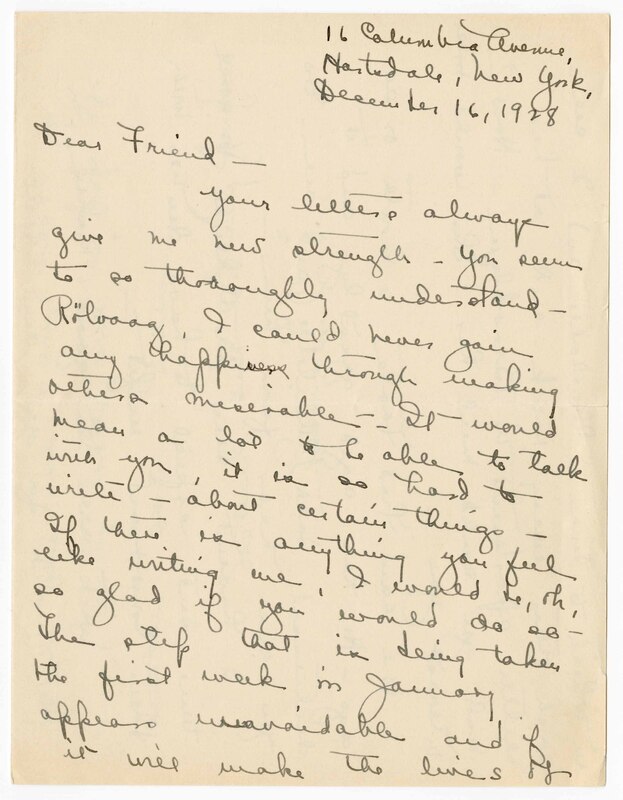 16 Columbia Avenue,
Hartsdale, New York,
December 16, 1928
Dear Friend —
Your letters always
give me new strength - you seem
to so thoroughly understand —
Rölvaag, I could never gain
any happiness through making
others miserable — It would
mean a lot to be able to talk
with you it is so hard to
write - about certain things —
If there is anything you feel
like writing me, I would be, oh,
so glad if you would do so —
The step that is being taken
the first week in January
appears unavoidable and if
it will make the lives of